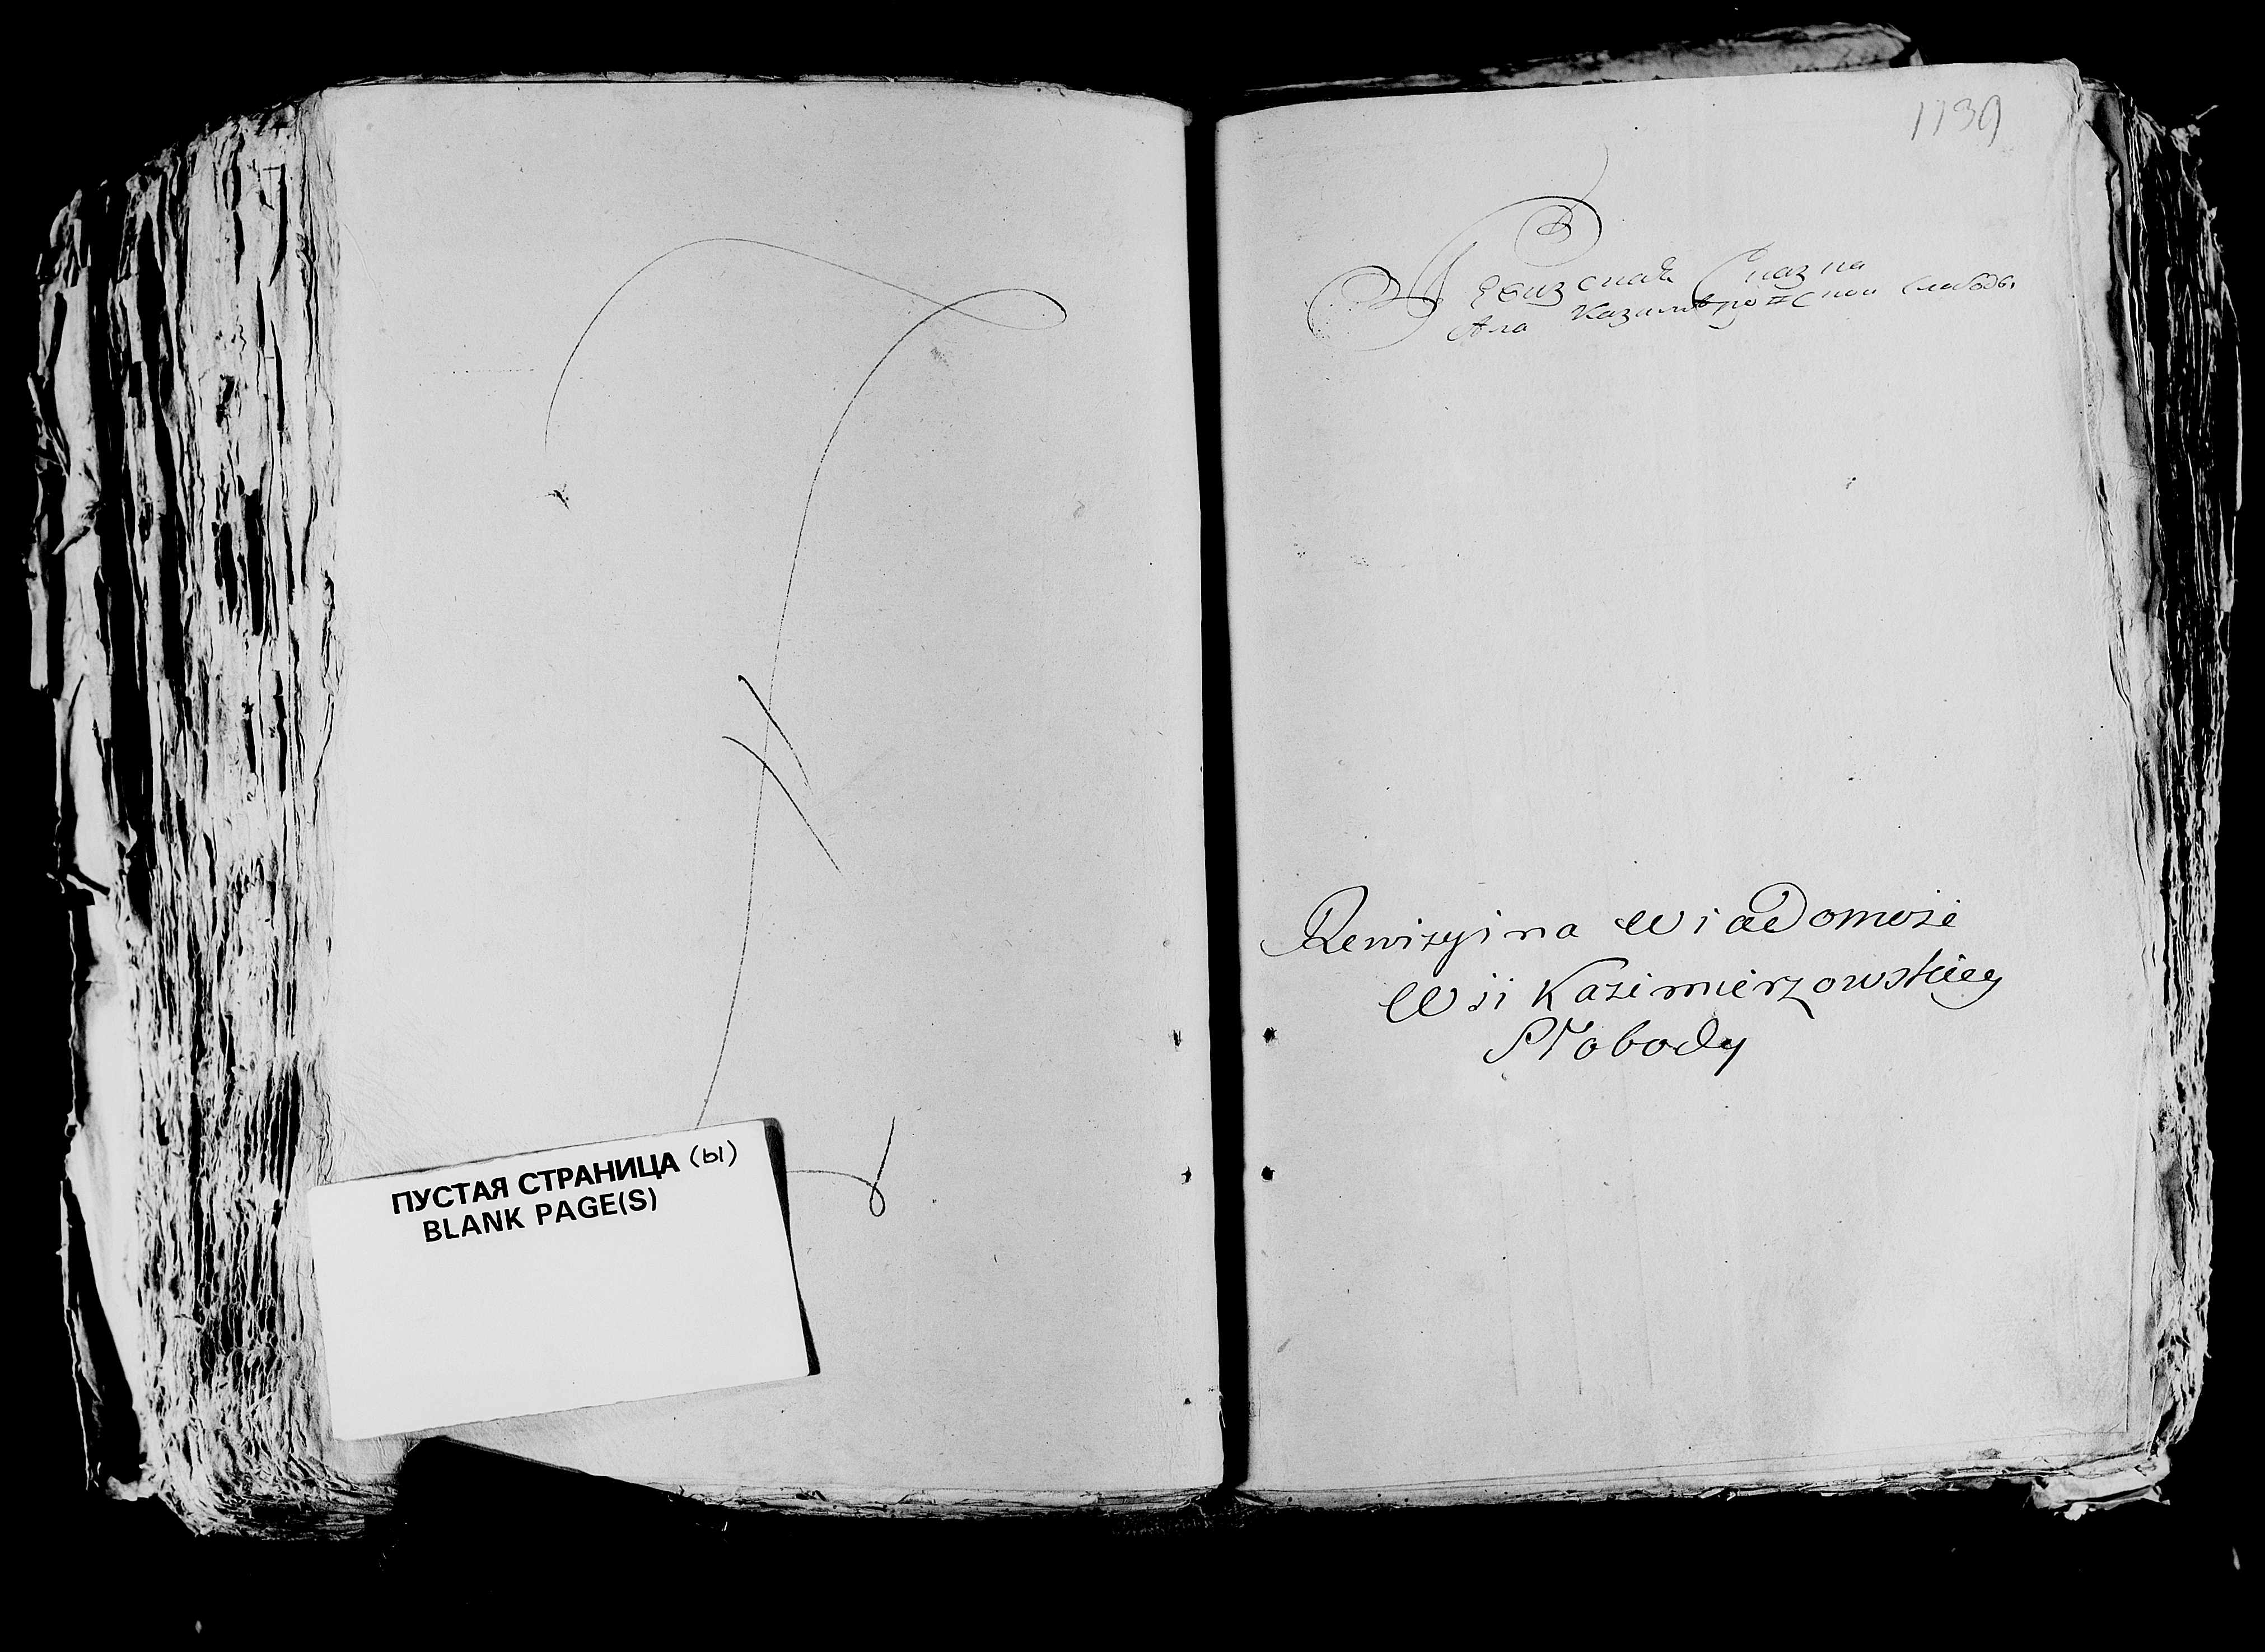 ПУСТАЯ СТРАНИЦА (ы)
BLANK PAGE(S)
1139
Ревизская Сказка
Казимировской слободы
Rewizyina Wiadomość
Wsi Kazimierzowskiey
Słobody